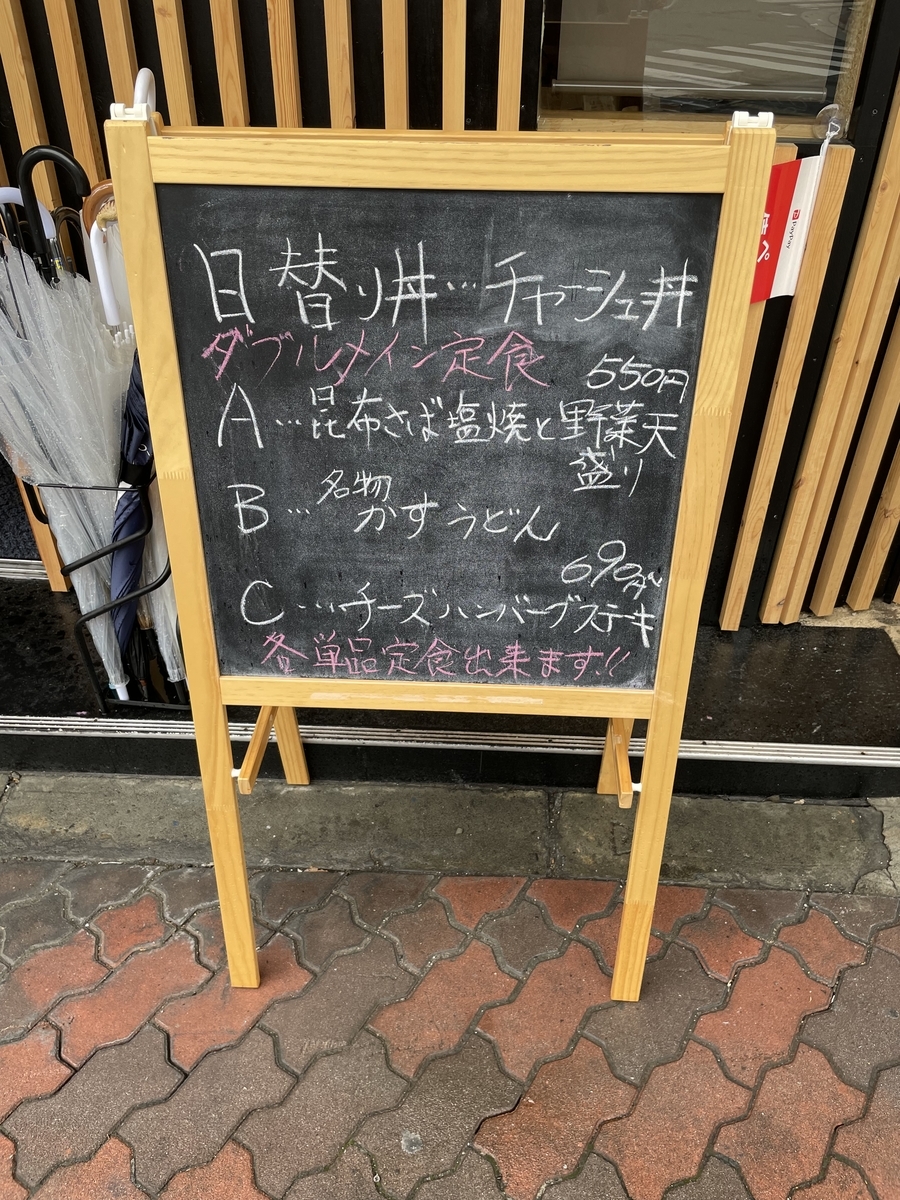 日替り丼…チャーシュ丼
ダブルメイン定食 550円
A…昆布さば塩焼と野菜天
盛り
B…名物かすうどん
690円〜
C…チーズハンバーグステキ
各単品定食出来ます!!
PayPay